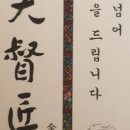 넘어
을 드립니다
大督匠
金